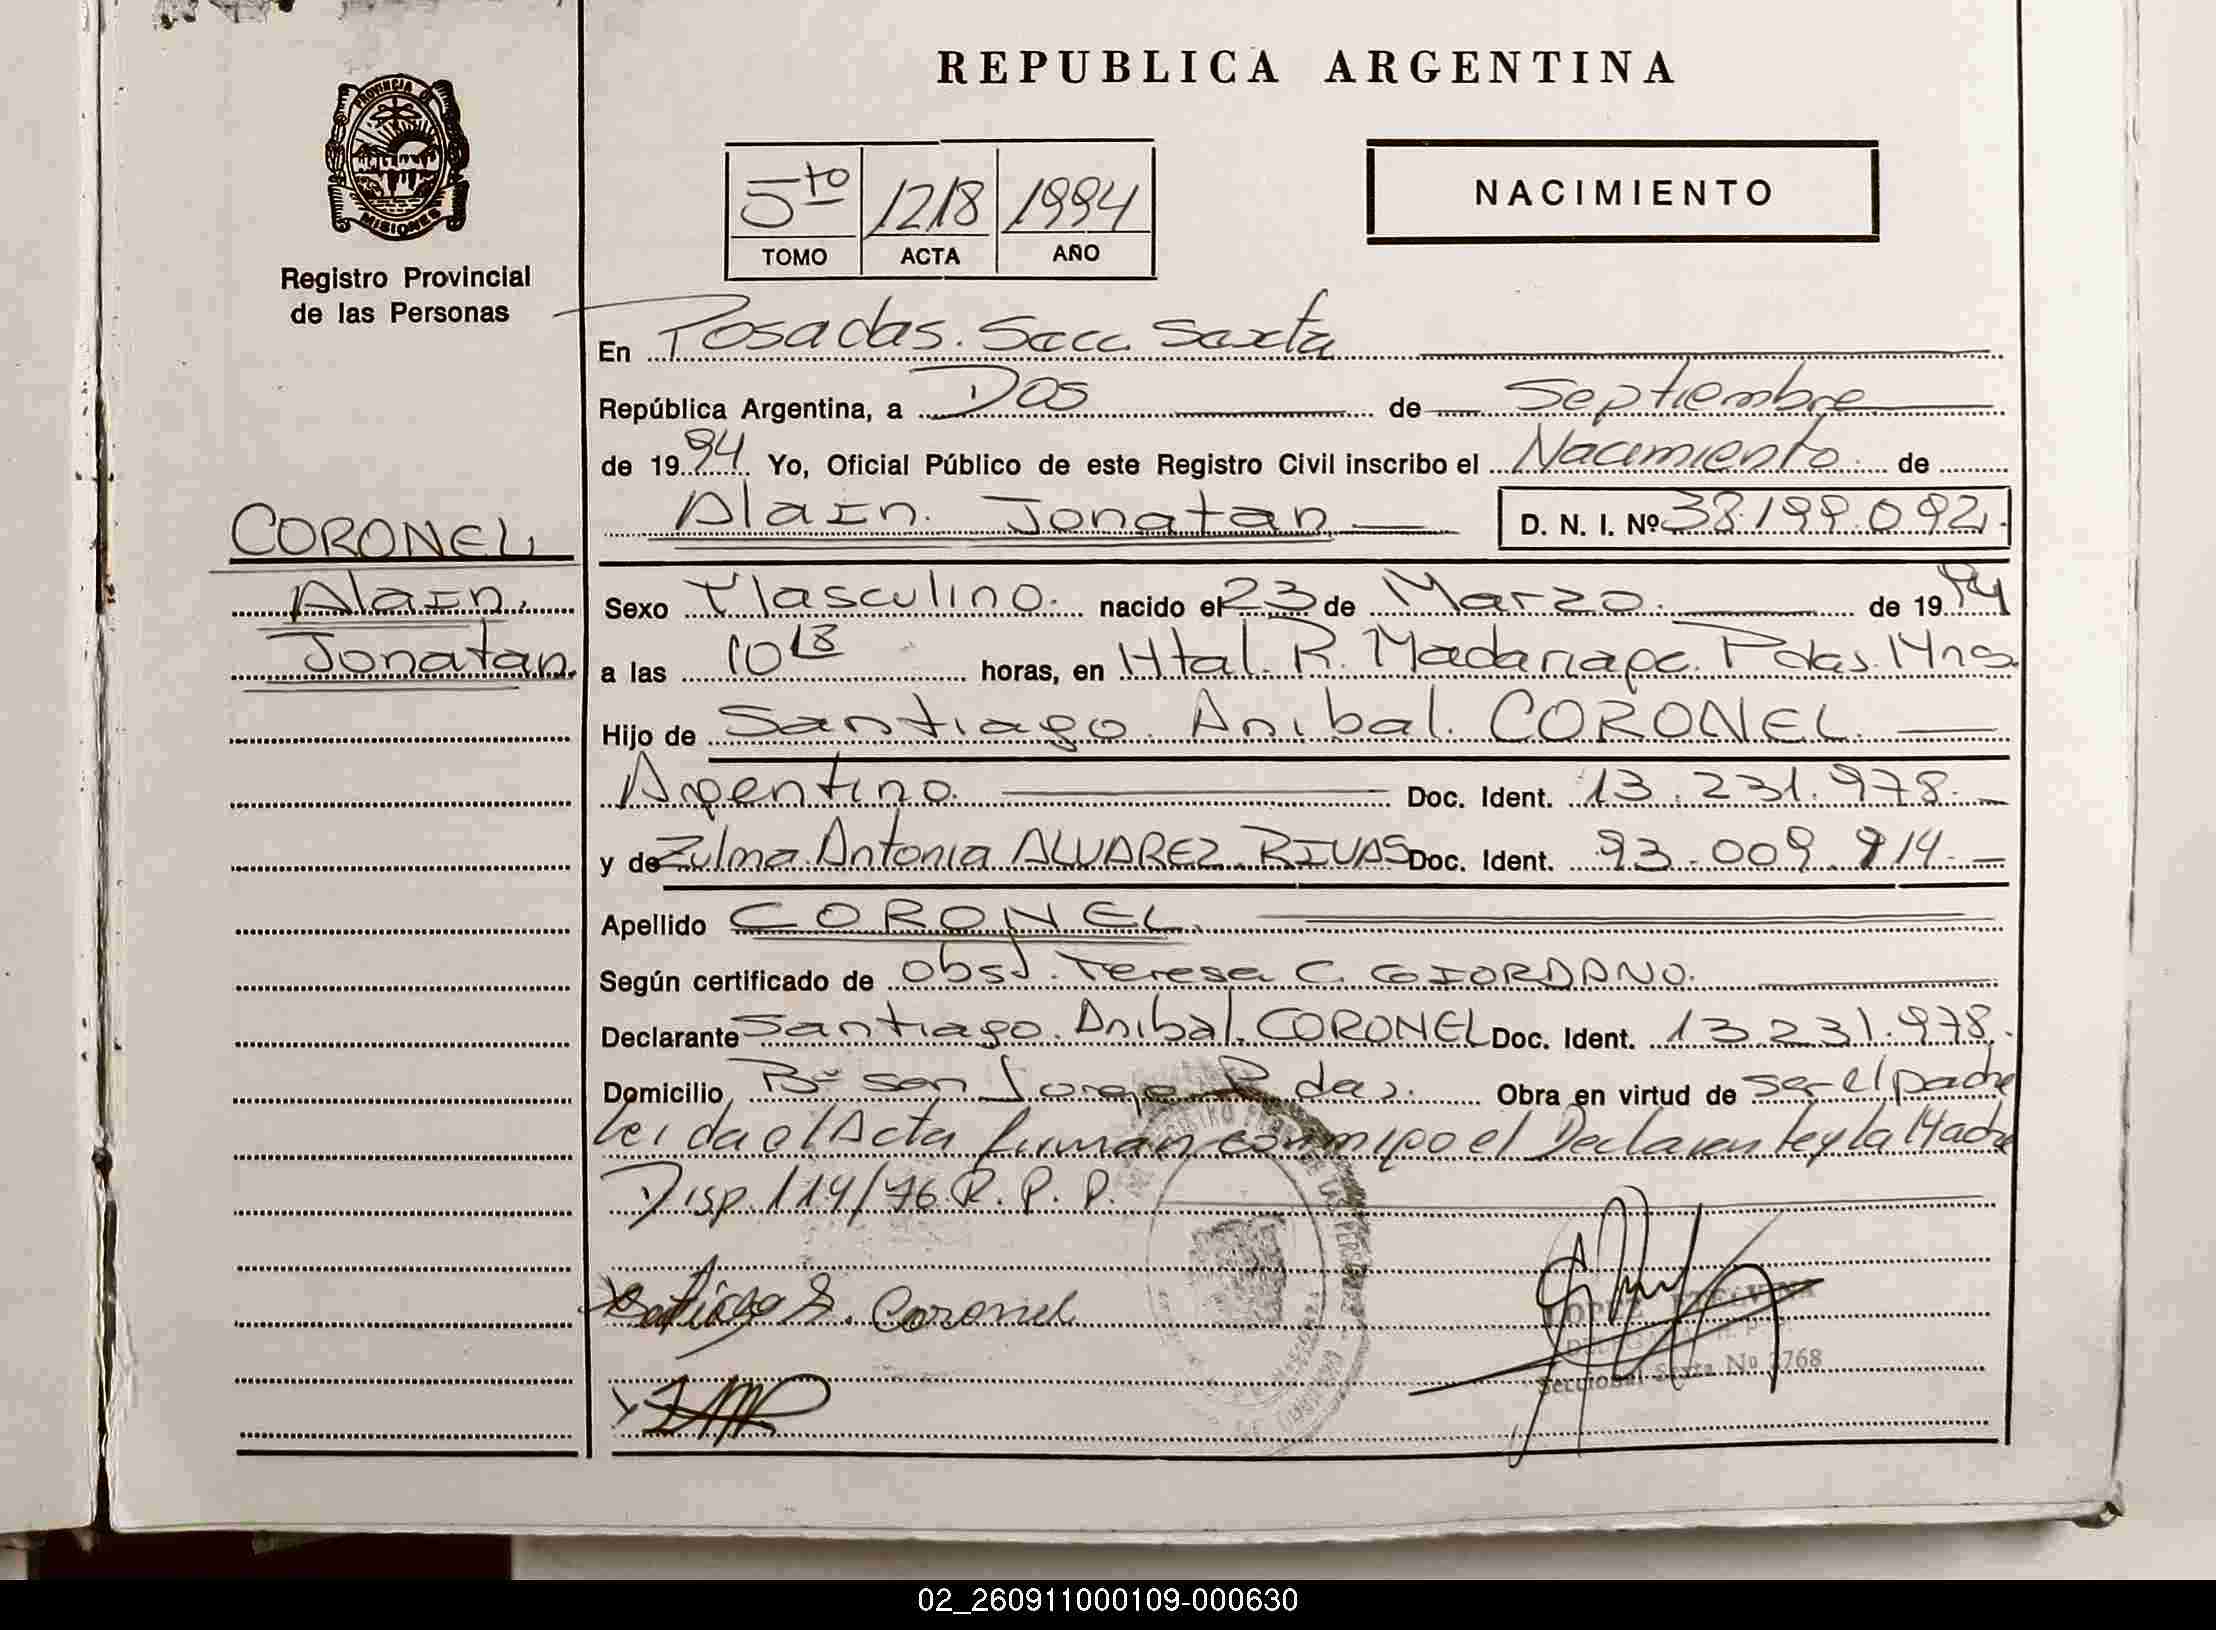 REPUBLICA ARGENTINA
PROVINCIA DE
MISIONES
Registro Provincial
de las Personas
5to 1218 1994
TOMO ACTA AÑO
NACIMIENTO
En Posadas. Secc. Sexta
República Argentina, a Dos de Septiembre
de 1994 Yo, Oficial Público de este Registro Civil inscribo el Nacimiento de
Alain. Jonatan D. N. I. Nº 38.199.092.
CORONEL
Alain.
Jonatan.
Sexo Masculino. nacido el 23 de Marzo. de 1994
a las 10 18 horas, en Htal. R. Madariaga. Pdas. Mnes.
Hijo de Santiago. Anibal. CORONEL.
Argentino. Doc. Ident. 13.231.978.
y de Zulma. Antonia ALVAREZ. RIVAS Doc. Ident. 93.009.914.
Apellido CORONEL.
Según certificado de Obst. Teresa C. GIORDANO.
Declarante Santiago. Anibal. CORONEL Doc. Ident. 13.231.978.
Domicilio Bº San Jorge Pdas. Obra en virtud de ser el padre
Leida el Acta firman conmigo el Declarante y la Madre
Disp. 114/76. R. P. P.
Santiago A. Coronel
Seccional Sexta Nº 3768
02_260911000109-000630